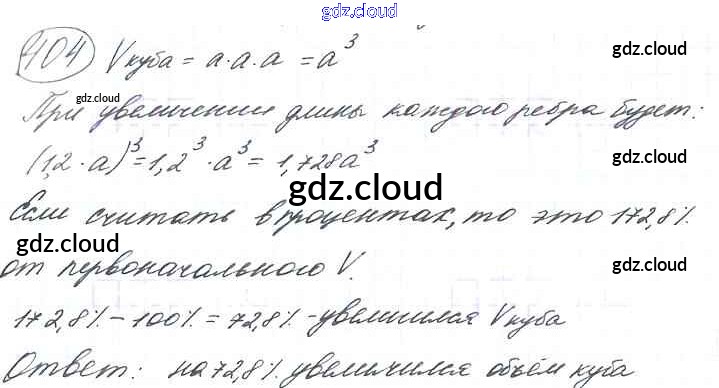 gdz.cloud
404 Vкуба = а·а·а = а³ gdz.cloud
gdz.cloud
При увеличении длины каждого ребра будет:
(1,2·а)³=1,2³·а³= 1,728а³ gdz.cloud
gdz.cloud
Если считать в процентах, то это 172,8%
gdz.cloud
от первоначального V. gdz.cloud
172,8% - 100% = 72,8% - увеличился Vкуба
Ответ: на 72,8% увеличился объём куба
gdz.cloud